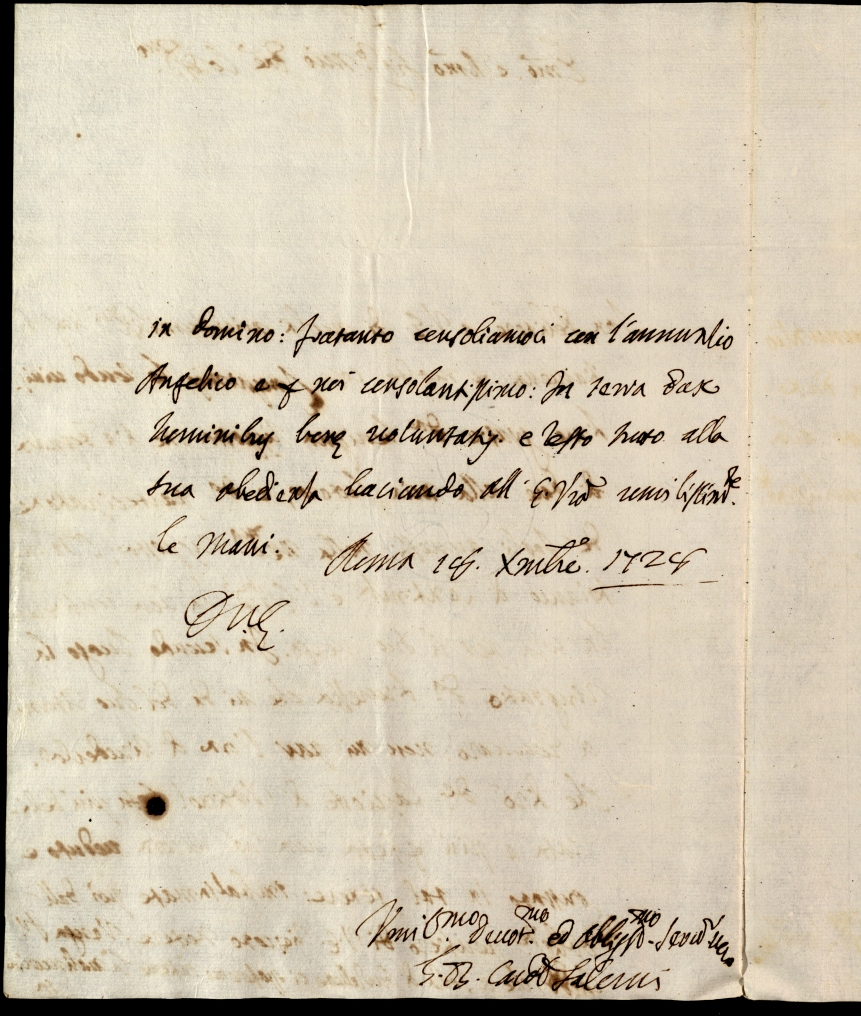 in domino: fratanto consoliamoci con l'annunzio
Angelico e p noi consolantissimo: In terra pax
hominibus bonę voluntatis. e resto tutto alla
sua obedienza baciando all' E Vrã umilissimte.
le mani. Roma 18. Xmbre. 1728
D.V.E.
Umilmo. devotmo. ed obligmo. Servẽ vero
G. B. Card Salerni